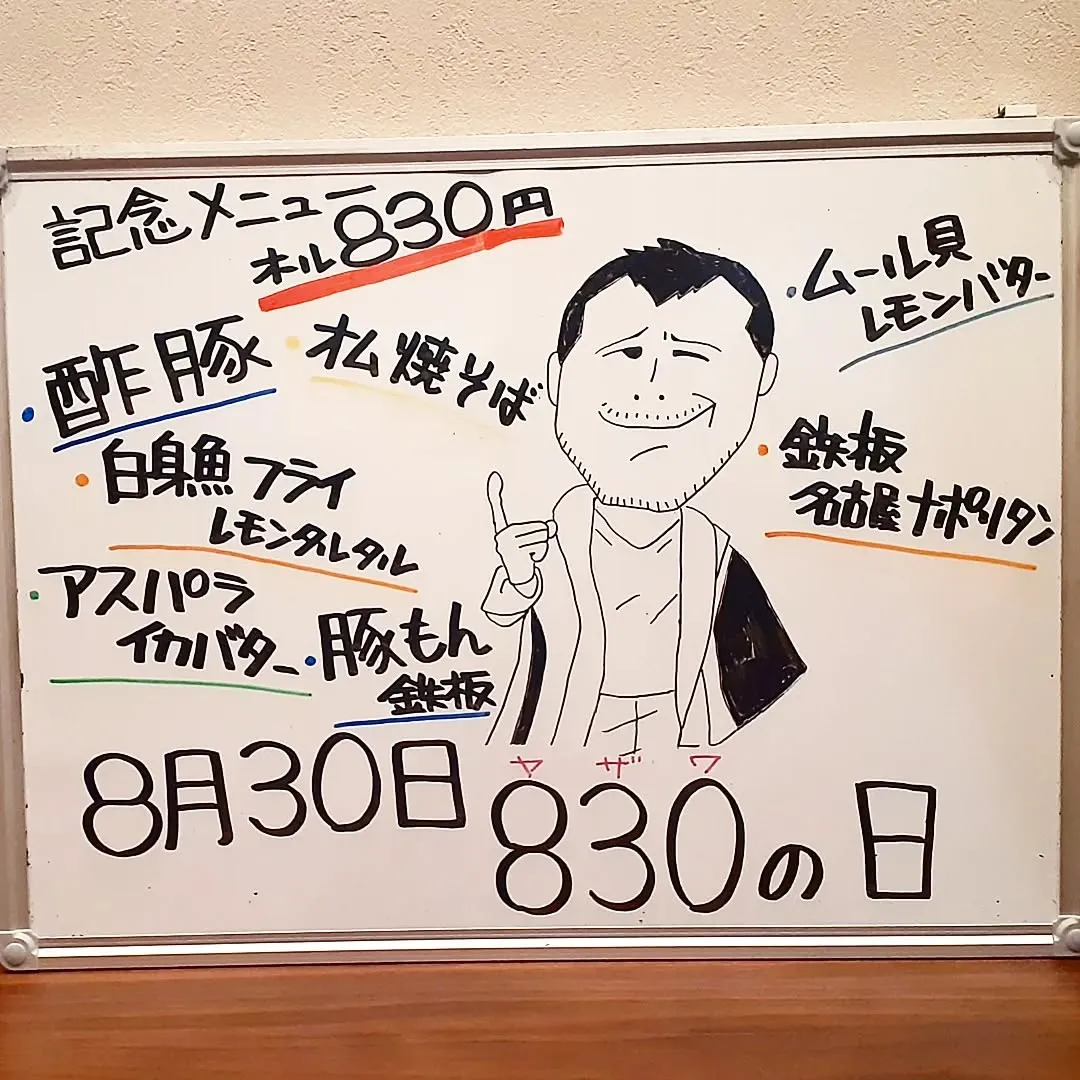 記念メニュー
オル830円
酢豚
オム焼そば
白身魚フライ
レモンタルタル
アスパラ
イカバター
豚もん
鉄板
ムール貝
レモンバター
鉄板
名古屋ナポリタン
8月30日
ヤ ザ ワ
830の日